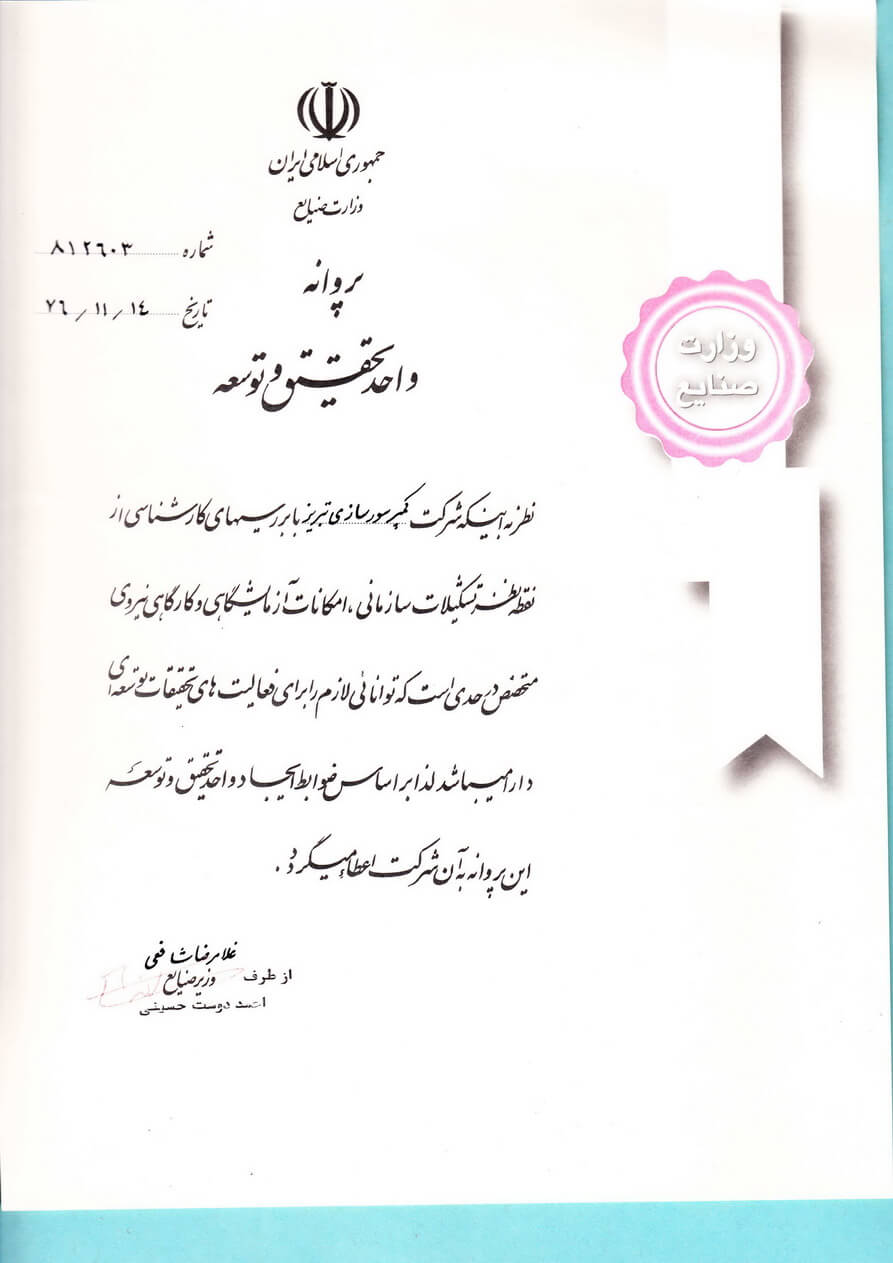 جمهوری اسلامی ایران
وزارت صنایع
شماره ۸۱۲٦۰۳
تاریخ ۷٦/۱۱/۱٤
پروانه
واحد تحقیق و توسعه
وزارت
صنایع
نظر به اینکه شرکت کمپرسورسازی تبریز با بررسیهای کارشناسی از
نقطه نظر تشکیلات سازمانی ، امکانات آزمایشگاهی و کارگاهی نیروی
متخصص در حدی است که توانائی لازم را برای فعالیت های تحقیقات توسعه ای
دارا میباشد لذا بر اساس ضوابط ایجاد واحد تحقیق و توسعه
این پروانه به آن شرکت اعطاء میگردد .
غلامرضا شافعی
از طرف وزیر صنایع
احمد دوست حسینی